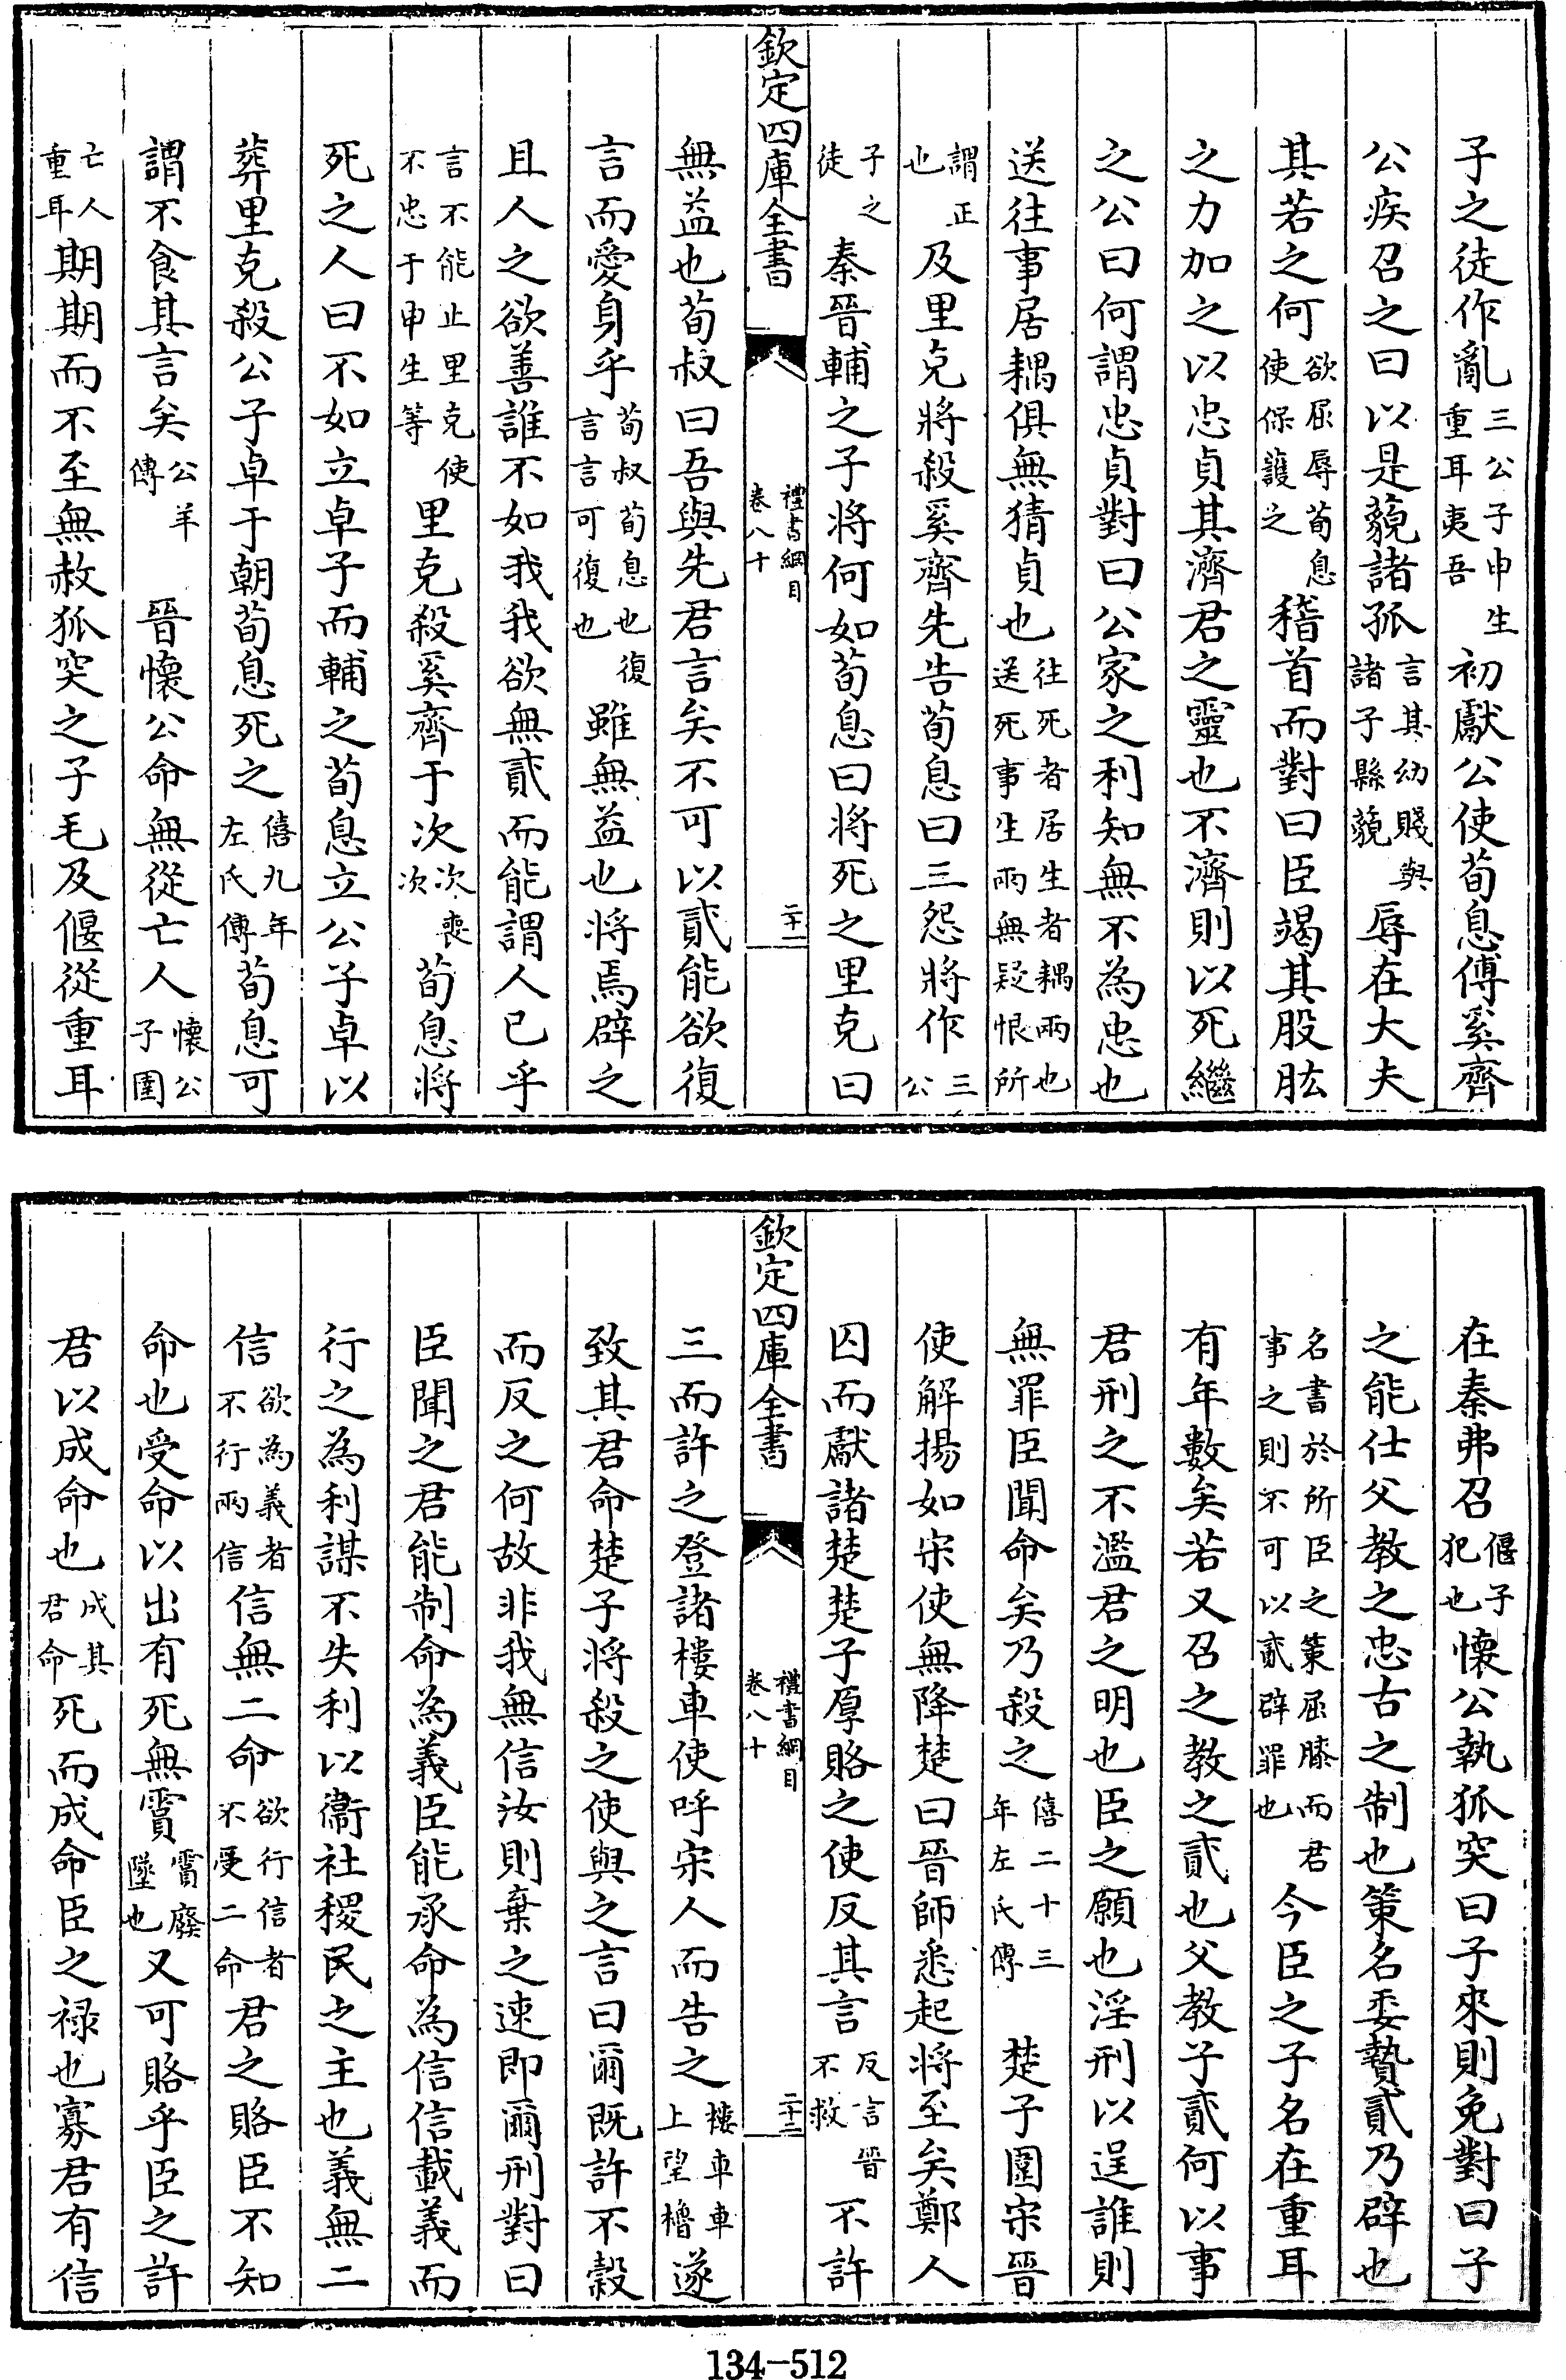 子之徒作亂三公子申生重耳夷吾初獻公使荀息傅奚齊
公疾召之曰以是藐諸孤言其幼賤與諸子縣藐辱在大夫
其若之何欲屈辱荀息使保護之稽首而對曰臣竭其股肱
之力加之以忠貞其濟君之靈也不濟則以死繼
之公曰何謂忠貞對曰公家之利知無不為忠也
送往事居耦俱無猜貞也往死者居生者耦兩也送死事生兩無疑恨所
謂正也及里克將殺奚齊先告荀息曰三怨將作三公
子之徒秦晉輔之子將何如荀息曰將死之里克曰
欽定四庫全書
禮書綱目
卷八十
二十一
無益也荀叔曰吾與先君言矣不可以貳能欲復
言而愛身乎荀叔荀息也復言言可復也雖無益也將焉辟之
且人之欲善誰不如我我欲無貳而能謂人已乎
言不能止里克使不忠于申生等里克殺奚齊于次次喪次荀息將
死之人曰不如立卓子而輔之荀息立公子卓以
葬里克殺公子卓于朝荀息死之僖九年左氏傳荀息可
謂不食其言矣公羊傳晉懷公命無從亡人懷公子圉
亡人重耳期期而不至無赦狐突之子毛及偃從重耳
在秦弗召偃子犯也懷公執狐突曰子來則免對曰子
之能仕父教之忠古之制也策名委贄貳乃辟也
名書於所臣之策屈膝而君事之則不可以貳辟罪也今臣之子名在重耳
有年數矣若又召之教之貳也父教子貳何以事
君刑之不濫君之明也臣之願也淫刑以逞誰則
無罪臣聞命矣乃殺之僖二十三年左氏傳楚子圍宋晉
使解揚如宋使無降楚曰晉師悉起將至矣鄭人
囚而獻諸楚楚子厚賂之使反其言反言晉不救不許
欽定四庫全書
禮書綱目
卷八十
二十二
三而許之登諸樓車使呼宋人而告之樓車車上望櫓遂
致其君命楚子將殺之使與之言曰爾既許不穀
而反之何故非我無信汝則棄之速即爾刑對曰
臣聞之君能制命為義臣能承命為信信載義而
行之為利謀不失利以衞社稷民之主也義無二
信欲為義者不行兩信信無二命欲行信者不受二命君之賂臣不知
命也受命以出有死無霣霣廢墜也又可賂乎臣之許
君以成命也成其君命死而成命臣之祿也寡君有信
134-512